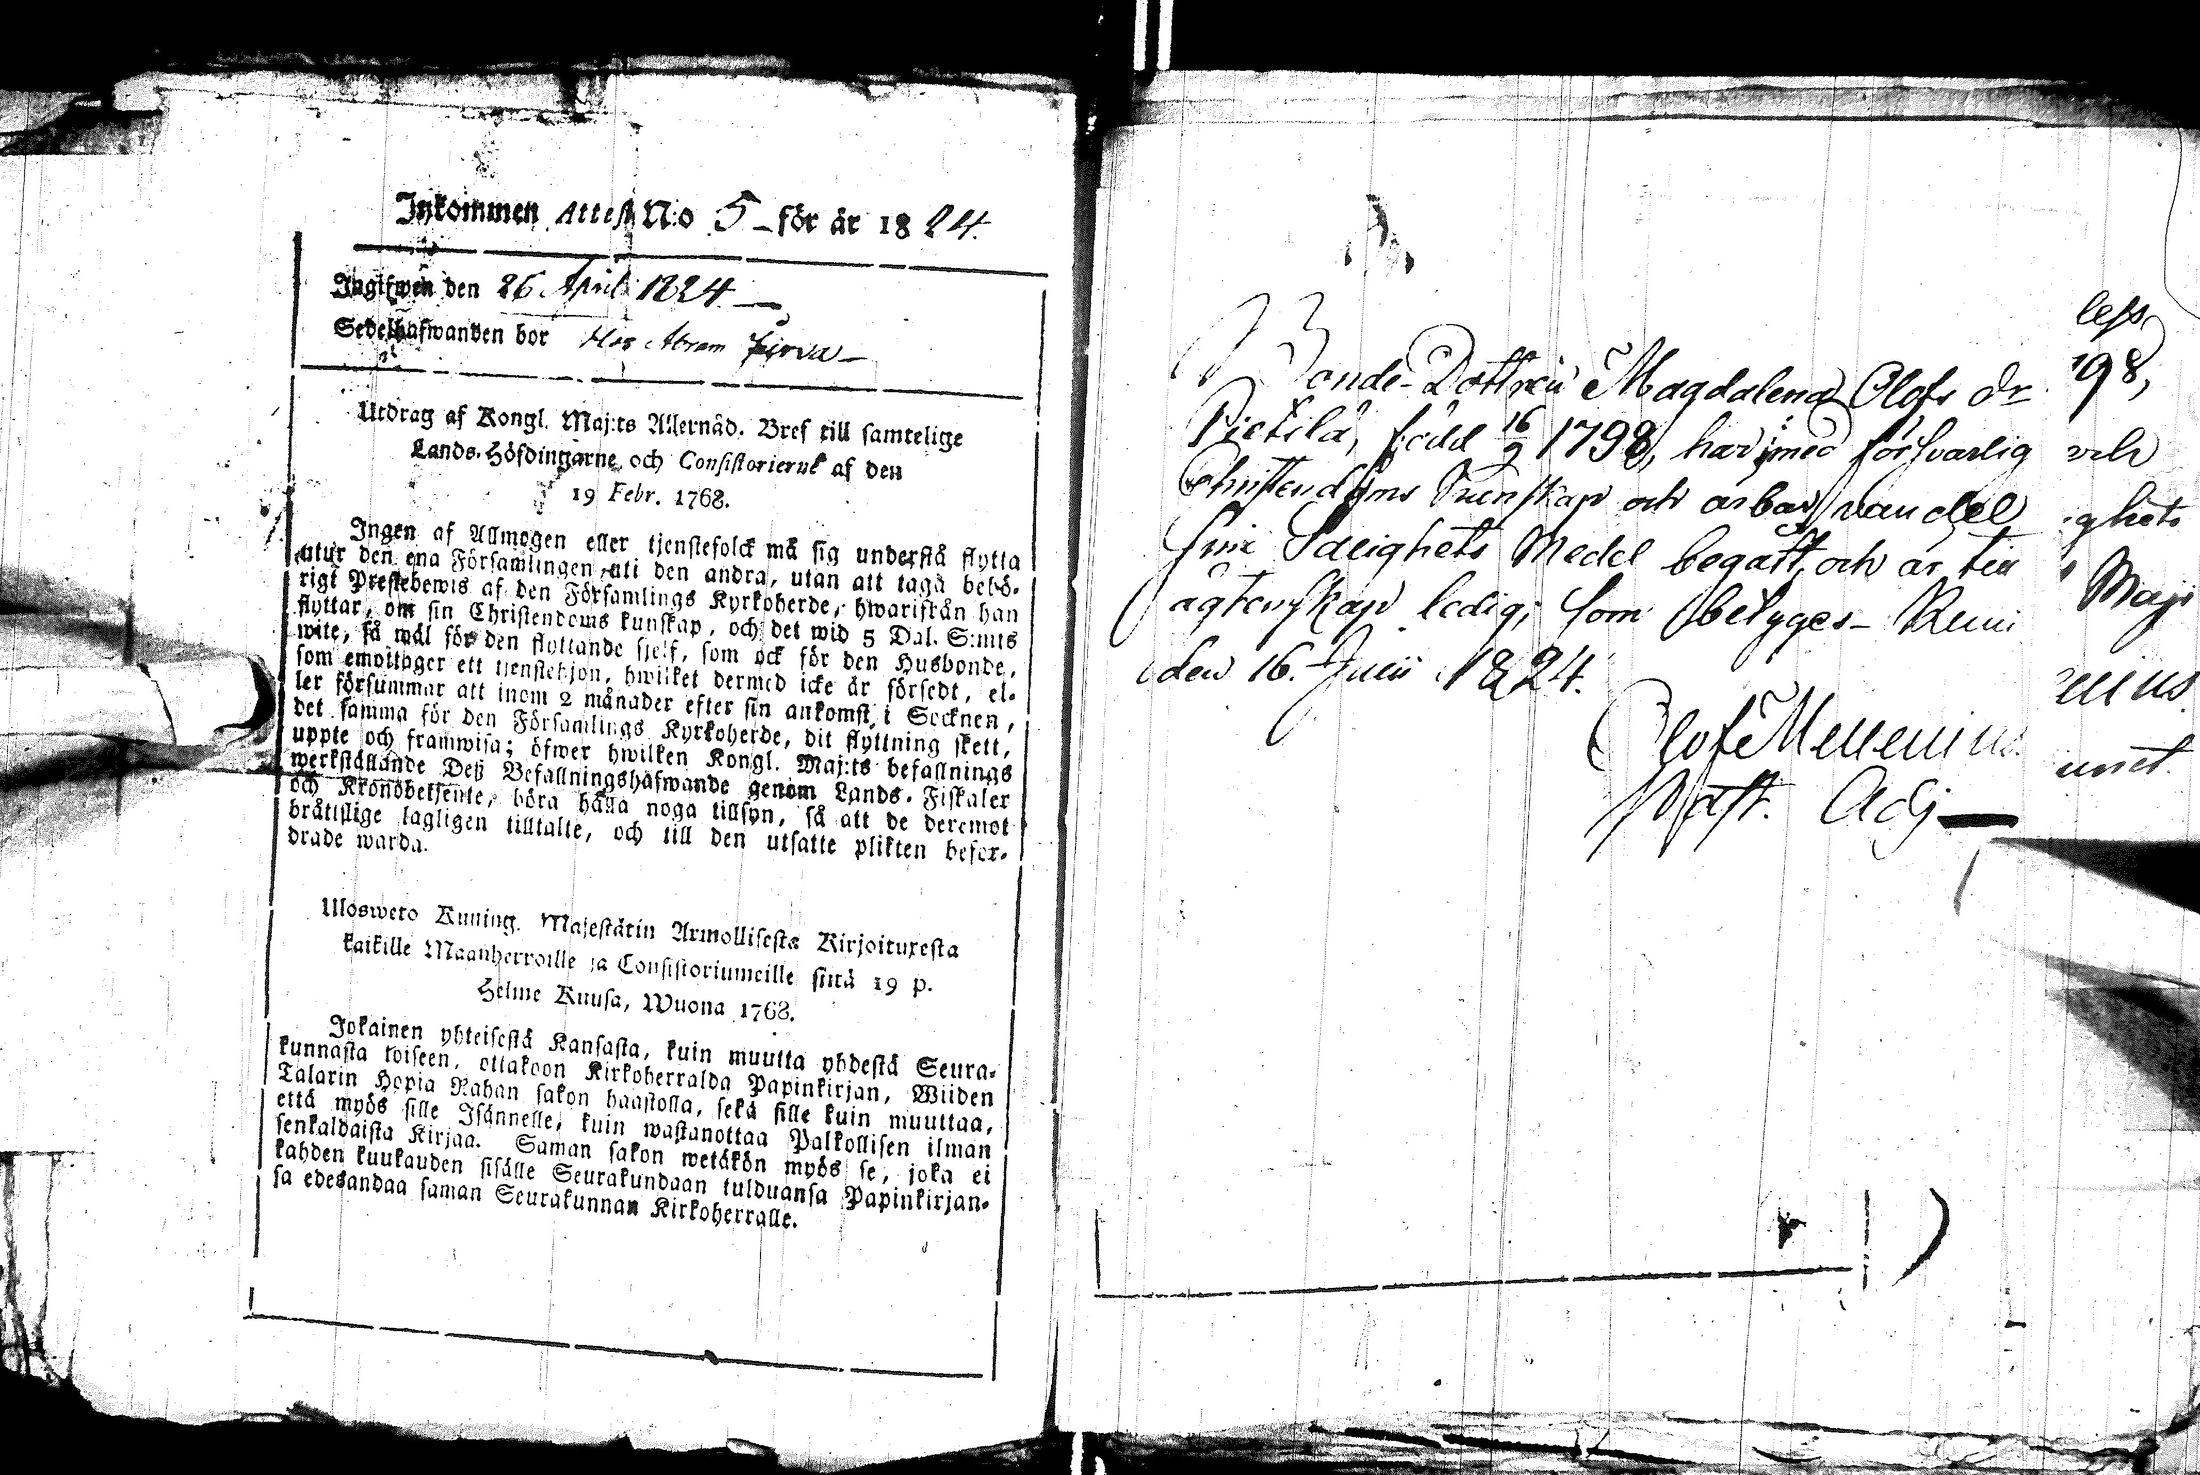 Inkommen Attest N:o 5 för år 1824.
Ingifwen den 26 April 1824
Sedelhafwanden bor Hos Abram
Utdrag af Kongl. Maj:ts Allernåd. Bref till samtelige
Lands-Höfdingarne och Consistorierne af den
19 Febr. 1768.
Ingen af Allmogen eller tjenstefolck må sig understå flytta
utur den ena Församlingen uti den andra, utan att taga behö-
rigt Prestebewis af den Församlings Kyrkoherde, hwarifrån han
flyttar, om sin Christendoms kunskap, och det wid 5 Dal. S:mts
wite, så wäl för den flyttande sjelf, som ock för den Husbonde,
som emottager ett tjenstehjon, hwilket dermed icke är försedt, el-
ler försummar att inom 2 månader efter sin ankomst i Socknen,
det samma för den Församlings Kyrkoherde, dit flyttning skett,
uppte och framwisa; öfwer hwilken Kongl. Maj:ts befallnings
werkställande Deß Befallningshafwande genom Lands-Fiskaler
och Kronobetjente, böra hålla noga tillsyn, så att de deremot
bråttslige lagligen tilltalte, och till den utsatte plikten befor-
drade warda.
Ulosweto Kuning. Majestätin Armollisesta Kirjoituxesta
kaikille Maanherroille ja Consistoriumeille siitä 19 p.
Helme Kuusa, Wuona 1768.
Jokainen yhteisestä Kansasta, kuin muutta yhdestä Seura-
kunnasta toiseen, ottakoon Kirkoherralda Papinkirjan, Wiiden
Talarin Hopia Rahan sakon haastolla, sekä sille kuin muuttaa,
että myös sille Isännelle, kuin wastanottaa Palkollisen ilman
senkaldaista Kirjaa. Saman sakon wetäkön myös se, joka ei
kahden kuukauden sisälle Seurakundaan tulduansa Papinkirjan-
sa edesandaa saman Seurakunnan Kirkoherralle.
Bonde-Dottren Magdalena Olofs dr
Pietilä, född 16/9 1798, har med försvarlig
Christendoms Kunskap och ärbar vandel
sine Salighets Medel begått, och är till
ägtenskap ledig, som betyges- Kemi
den 16. Junii 1824.
Olof Mellenius
Past. Adj
198,
ghets
Maji